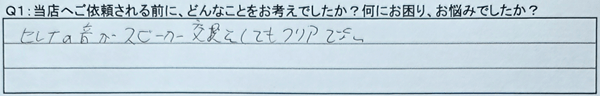 Q1：当店へご依頼される前に、どんなことをお考えでしたか？何にお困り、お悩みでしたか？
ヒレナの音がスピーカー交換をしてもクリアでない